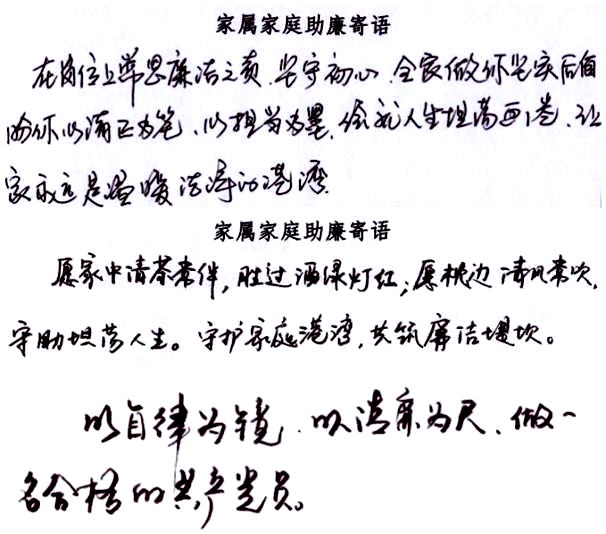 家属家庭助廉寄语
在岗位上常思廉洁之责,坚守初心,全家做你坚实后盾
愿你以清正为笔,以担当为墨,绘就人生坦荡画卷,让
家永远是温暖洁净的港湾.
家属家庭助廉寄语
愿家中清茶常伴,胜过酒绿灯红;愿枕边清风常吹,
守助坦荡人生。守护家庭港湾,共筑廉洁堤坝。
以自律为镜、以清廉为尺、做一
名合格的共产党员。